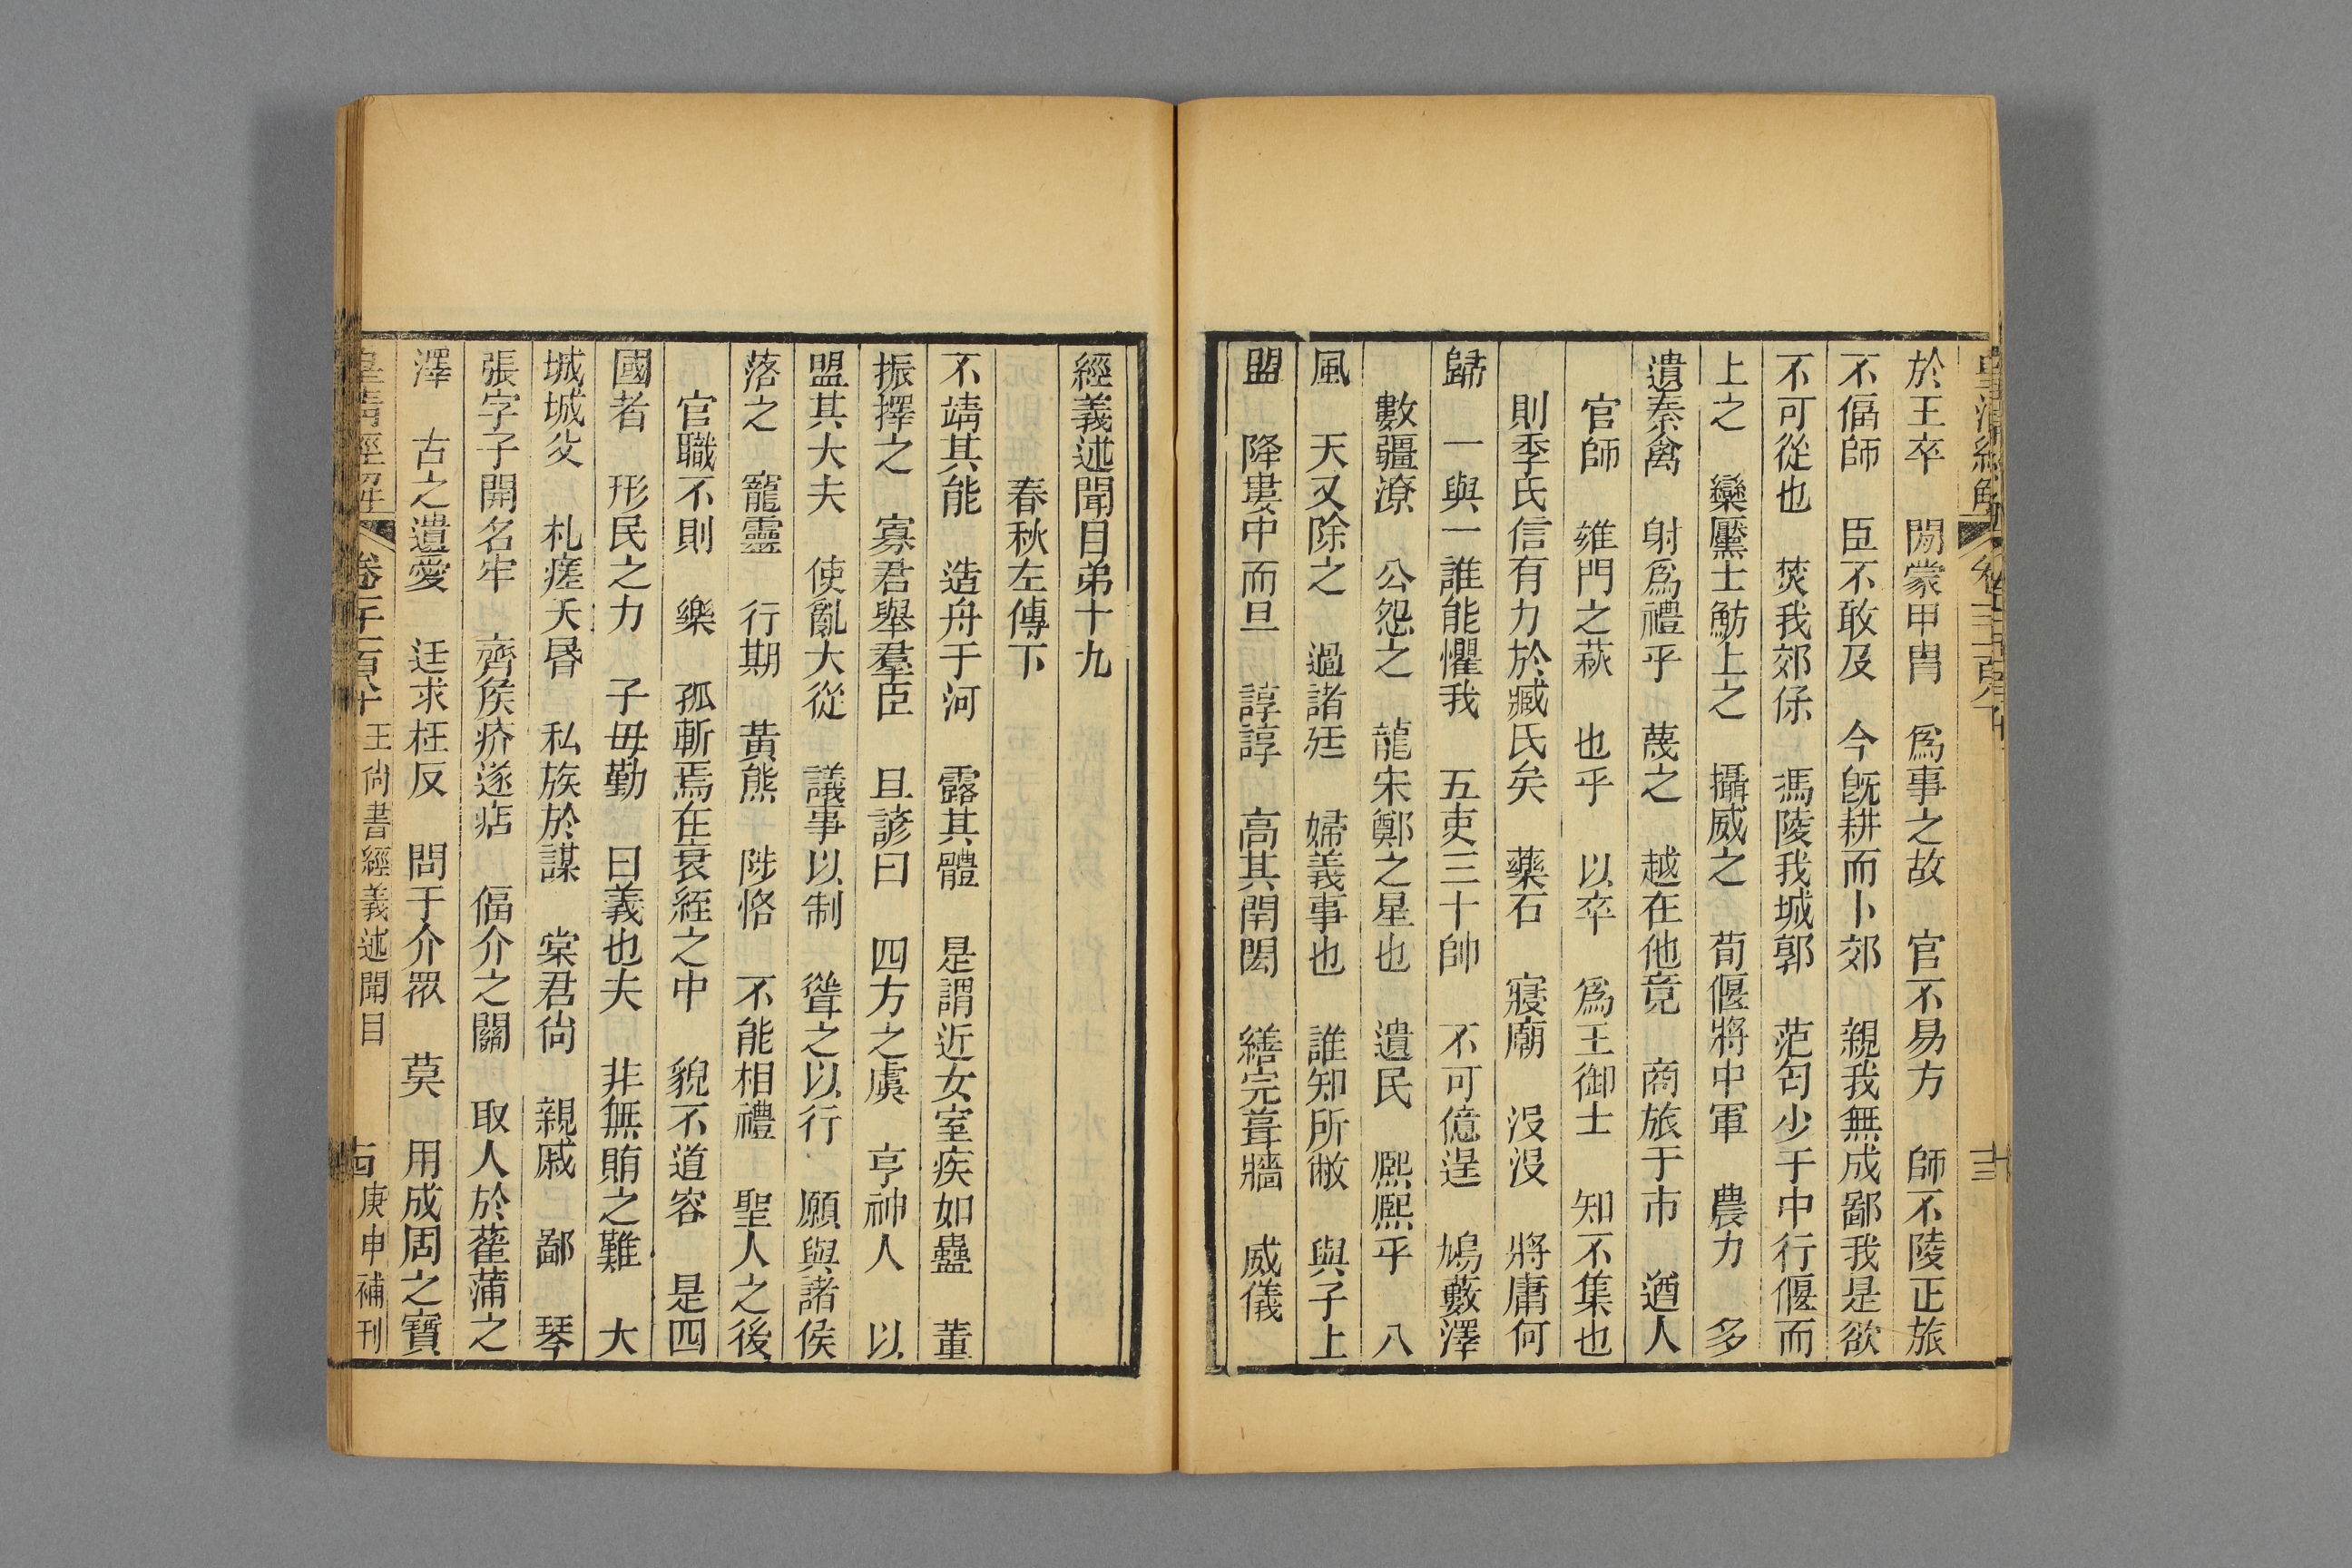 於王卒　閒蒙甲冑　爲事之故　官不易方　師不陵正旅
不偪師　臣不敢及　今旣耕而卜郊　親我無成鄙我是欲
不可從也　焚我郊保　馮陵我城郭　范匄少于中行偃而
上之　欒黶士魴上之　攝威之　荀偃將中軍　農力　多
遺秦禽　射爲禮乎　蔑之　越在他竟　商旅于市　遒人
官師　雍門之萩　也乎　以卒　爲王御士　知不集也
則季氏信有力於臧氏矣　藥石　寢廟　沒沒　將庸何
歸　一與一誰能懼我　五吏三十帥　不可億逞　鳩藪澤
數疆潦　公怨之　龍宋鄭之星也　遺民　熙熙乎　八
風　天又除之　過諸廷　婦義事也　誰知所敝　與子上
盟　降婁中而旦　諄諄　高其閈閎　繕完葺牆　威儀
十三
經義述聞目弟十九
春秋左傳下
不靖其能　造舟于河　露其體　是謂近女室疾如蠱　董
振擇之　寡君舉羣臣　且諺曰　四方之虞　亨神人　以
盟其大夫　使亂大從　議事以制　聳之以行　願與諸侯
落之　寵靈　行期　黃熊　陟恪　不能相禮　聖人之後
官職不則　樂　孤斬焉在衰絰之中　貌不道容　是四
國者　形民之力　子毋勤　曰義也夫　非無賄之難　大
城城父　札瘥夭昬　私族於謀　棠君尙　親戚　鄙　琴
張字子開名牢　齊侯疥遂痁　偪介之關　取人於萑蒲之
澤　古之遺愛　迋求枉反　問于介眾　莫　用成周之寶
皇淸經解　卷一千一百八十　王尙書經義述聞目　古　庚申補刊